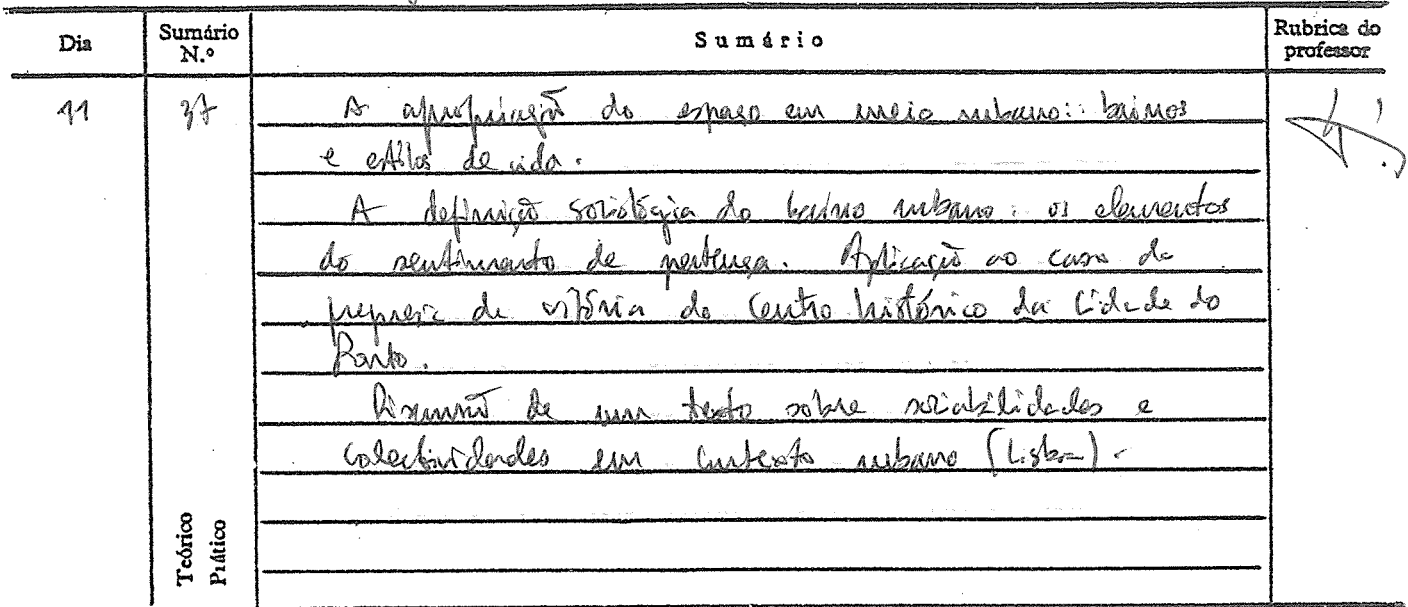 Dia Sumário N.º Sumário Rubrica do professor
11 37 A apropriação do espaço em meio urbano: bairros
e estilos de vida.
A definição sociológica do bairro urbano: os elementos
do sentimento de pertença. Aplicação ao caso da
freguesia da vitória do Centro histórico da Cidade do
Porto.
Discussão de um texto sobre sociabilidades e
colectividades em contexto urbano (Lisboa).
Teórico
Prático